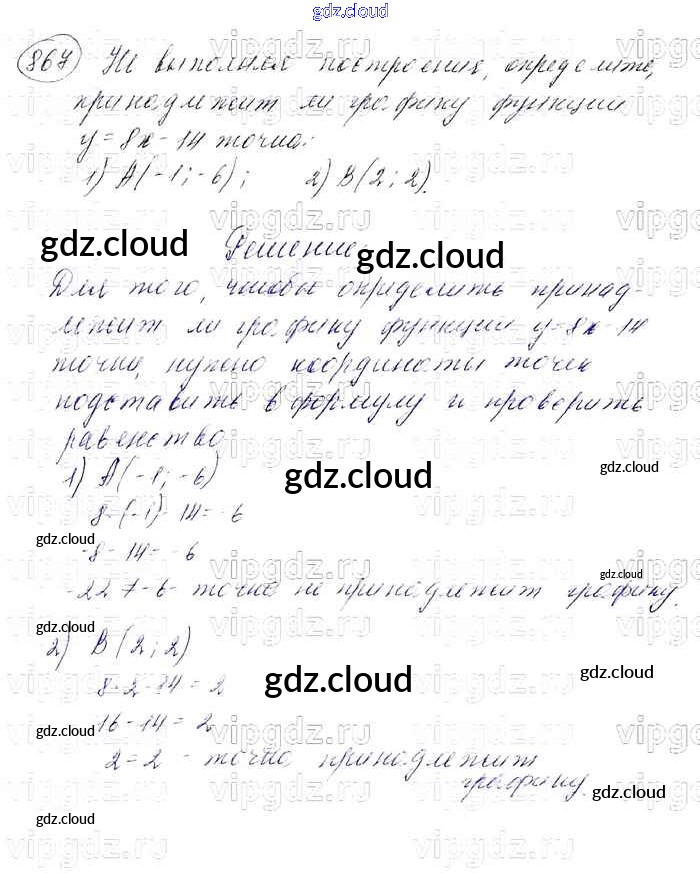 gdz.cloud
867 Не выполняя построения, определите,
принадлежит ли графику функции
y = 8x - 14 точка:
1) A(-1; -6); 2) B(2; 2).
gdz.cloud Решение. gdz.cloud
Для того, чтобы определить принад-
лежит ли графику функции y=8x-14
точка, нужно координаты точек
подставить в формулу и проверить
равенство
1) A(-1; -6) gdz.cloud gdz.cloud
8·(-1)-14=-6
gdz.cloud
-8-14=-6
gdz.cloud
-22≠-6 - точка не принадлежит графику.
gdz.cloud
2) B(2; 2)
8·2-14=2 gdz.cloud gdz.cloud
16-14=2
gdz.cloud
2=2 - точка принадлежит
графику. gdz.cloud
gdz.cloud